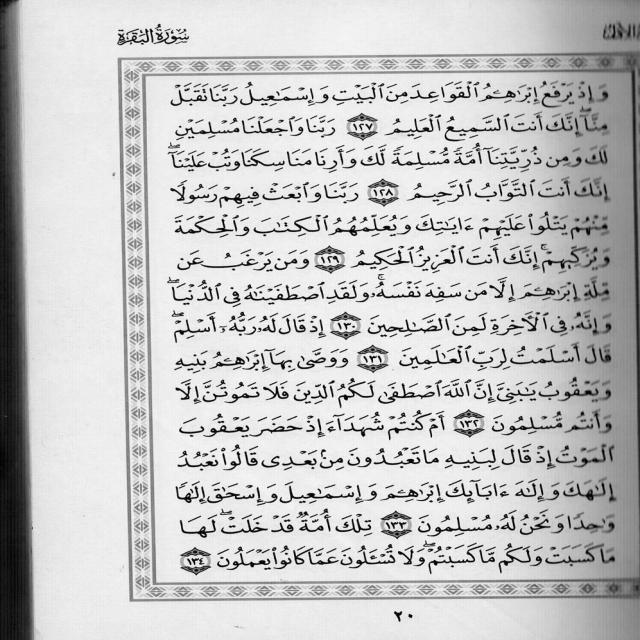 سُورَةُ البَقَرَةِ
وَإِذْ يَرْفَعُ إِبْرَاهِـۧمُ الْقَوَاعِدَ مِنَ الْبَيْتِ وَإِسْمَاعِيلُ رَبَّنَا تَقَبَّلْ
مِنَّآ إِنَّكَ أَنتَ السَّمِيعُ الْعَلِيمُ ١٢٧ رَبَّنَا وَاجْعَلْنَا مُسْلِمَيْنِ
لَكَ وَمِن ذُرِّيَّتِنَآ أُمَّةً مُّسْلِمَةً لَّكَ وَأَرِنَا مَنَاسِكَنَا وَتُبْ عَلَيْنَآ
إِنَّكَ أَنتَ التَّوَّابُ الرَّحِيمُ ١٢٨ رَبَّنَا وَابْعَثْ فِيهِمْ رَسُولًا
مِّنْهُمْ يَتْلُوا عَلَيْهِمْ ءَايَاتِكَ وَيُعَلِّمُهُمُ الْكِتَابَ وَالْحِكْمَةَ
وَيُزَكِّيهِمْ إِنَّكَ أَنتَ الْعَزِيزُ الْحَكِيمُ ١٢٩ وَمَن يَرْغَبُ عَن
مِّلَّةِ إِبْرَاهِـۧمَ إِلَّا مَن سَفِهَ نَفْسَهُۥ وَلَقَدِ اصْطَفَيْنَاهُ فِي الدُّنْيَا
وَإِنَّهُۥ فِي الْآخِرَةِ لَمِنَ الصَّالِحِينَ ١٣٠ إِذْ قَالَ لَهُۥ رَبُّهُۥٓ أَسْلِمْ
قَالَ أَسْلَمْتُ لِرَبِّ الْعَالَمِينَ ١٣١ وَوَصَّىٰ بِهَآ إِبْرَاهِـۧمُ بَنِيهِ
وَيَعْقُوبُ يَابَنِيَّ إِنَّ اللَّهَ اصْطَفَىٰ لَكُمُ الدِّينَ فَلَا تَمُوتُنَّ إِلَّا
وَأَنتُم مُّسْلِمُونَ ١٣٢ أَمْ كُنتُمْ شُهَدَآءَ إِذْ حَضَرَ يَعْقُوبَ
الْمَوْتُ إِذْ قَالَ لِبَنِيهِ مَا تَعْبُدُونَ مِنۢ بَعْدِي قَالُوا نَعْبُدُ
إِلَٰهَكَ وَإِلَٰهَ ءَابَآئِكَ إِبْرَاهِـۧمَ وَإِسْمَاعِيلَ وَإِسْحَاقَ إِلَٰهًا
وَاحِدًا وَنَحْنُ لَهُۥ مُسْلِمُونَ ١٣٣ تِلْكَ أُمَّةٌ قَدْ خَلَتْ لَهَا
مَا كَسَبَتْ وَلَكُم مَّا كَسَبْتُمْ وَلَا تُسْـَٔلُونَ عَمَّا كَانُوا يَعْمَلُونَ ١٣٤
٢٠